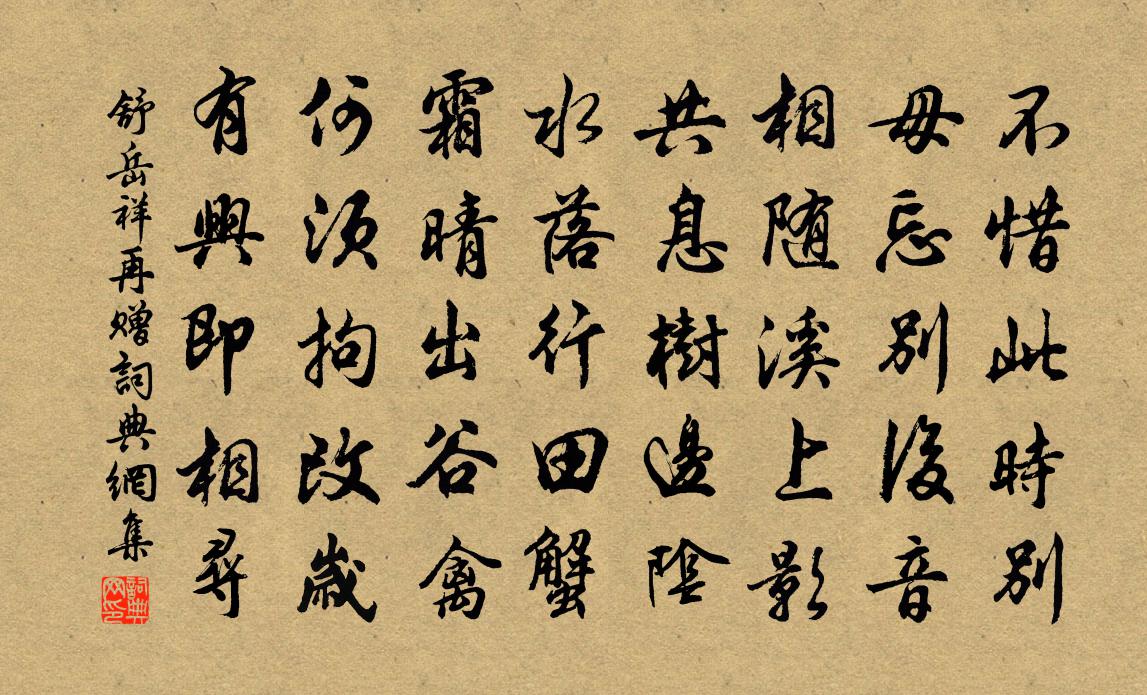 不惜此時別
毋忘別後音
相隨溪上影
共息樹邊陰
水落行田蟹
霜晴出谷禽
何須拘改歲
有興即相尋
舒岳祥再贈詞典網集
詞典网印